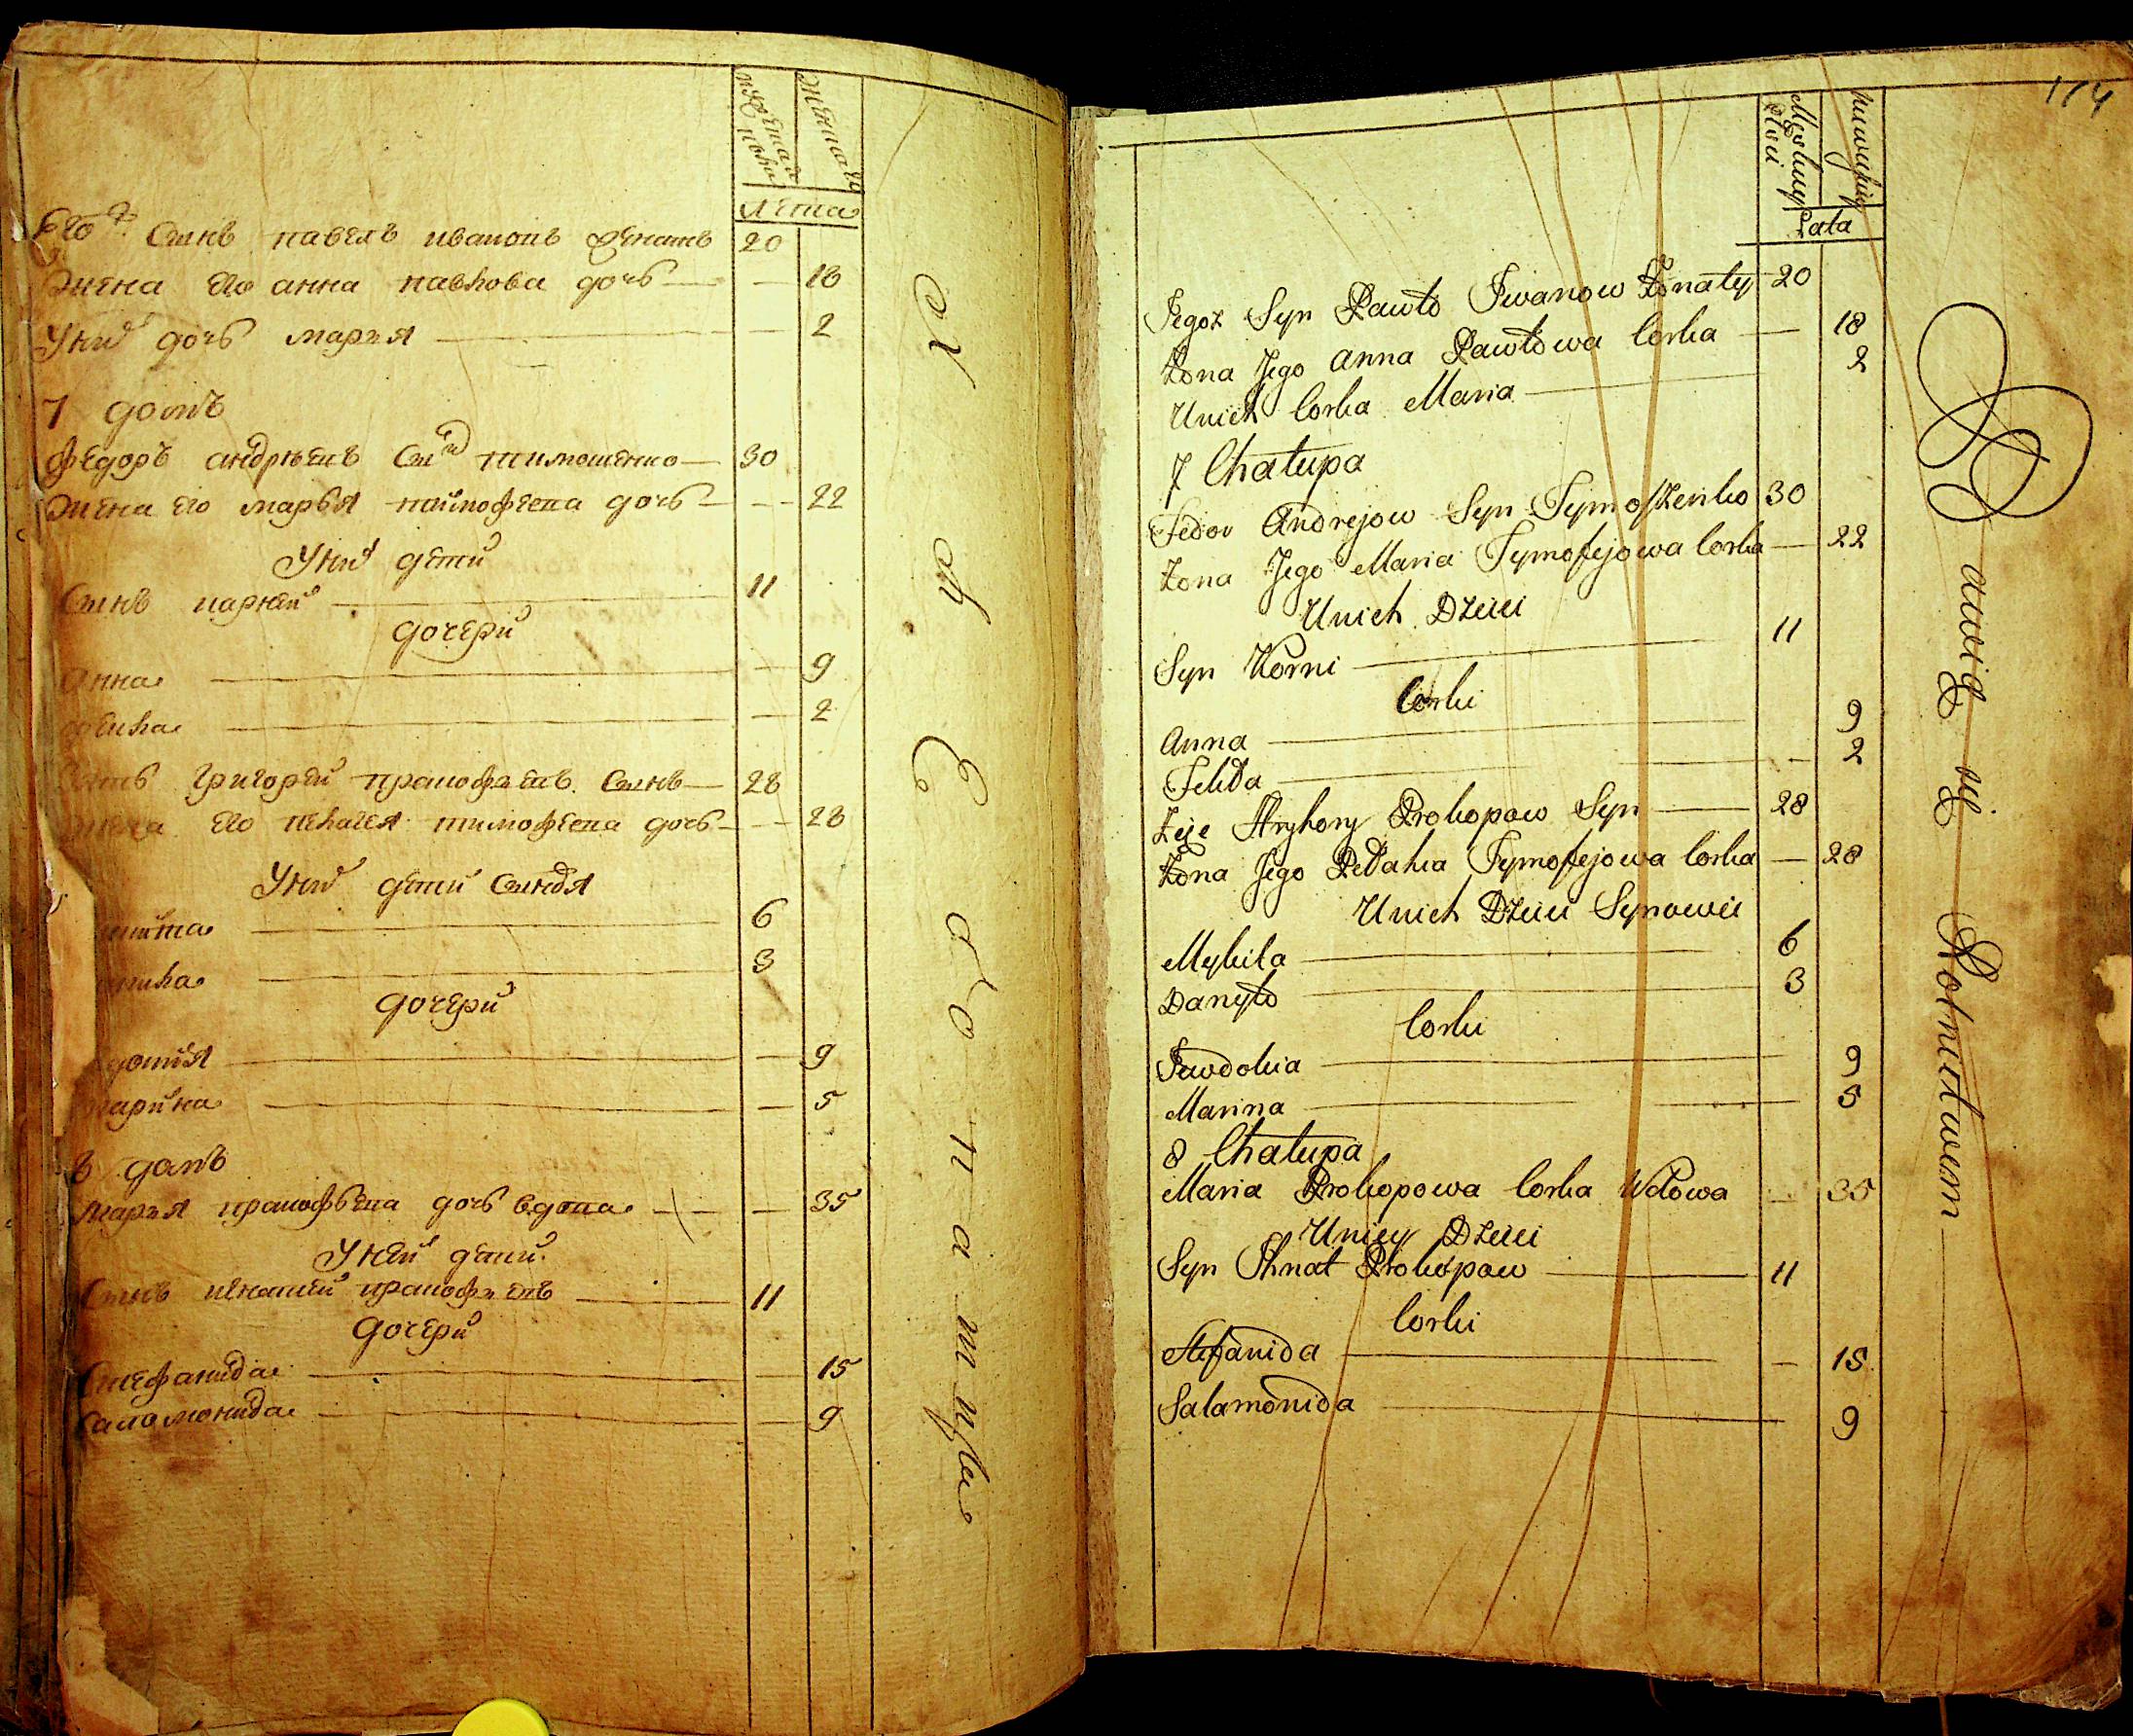 мужеска пола
женска
лета
Его ж Сынъ павелъ ивановъ женатъ 20
жена его анна павлова дочь — 18
У них дочь марья — 2
7 домъ
федоръ андреевъ Сын тимошенко — 30
жена его марья тимофеева дочь — 22
У них дети
Сынъ карней — 11
дочери
анна — 9
фекла — 2
зять григорей прокофьевъ Сынъ — 28
жена его пелагея тимофеева дочь — 28
У них дети Сыновя
никита — 6
данила — 3
дочери
— 9
марина — 5
8 домъ
марья прокофьева дочь вдова — 35
У ней дети
Сынъ игнатей прокофьевъ — 11
дочери
Стефанида — 15
Саломонида — 9
174
Męskiey Płci
Niewieściey
Lata
Jegoż Syn Pawło Iwanow Żonaty 20
Żona Jego Anna Pawłowa Corka — 18
Unich Corka Maria — 2
7 Chałupa
Fedor Andrejow Syn Tymoszenko 30
Żona Jego Maria Tymofejowa Corka — 22
Unich Dzieci
Syn Korni — 11
Corki
Anna — 9
Fekła — 2
Zięć Hryhory Prokopow Syn — 28
Żona Jego Pełahia Tymofejowa Corka — 28
Unich Dzieci Synowie
Mykita — 6
Danyło — 3
Corki
Jewdokia — 9
Marina — 5
8 Chałupa
Maria Prokopowa Corka Wdowa — 35
Uniey Dzieci
Syn Ihnat Prokopow — 11
Corki
Stefanida — 15
Salamonida — 9
Bawią się Rolnictwem